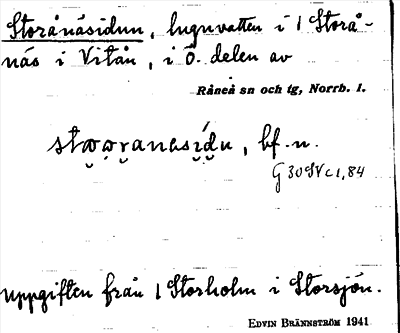 Storånäsidun, lugnvatten i 1 Storå-
näs i Vitån, i ö. delen av
Råneå sn och tg, Norrb. l.
bf. n.
uppgiften från 1 Storholm i Storsjön.
EDVIN BRÄNNSTRÖM 1941